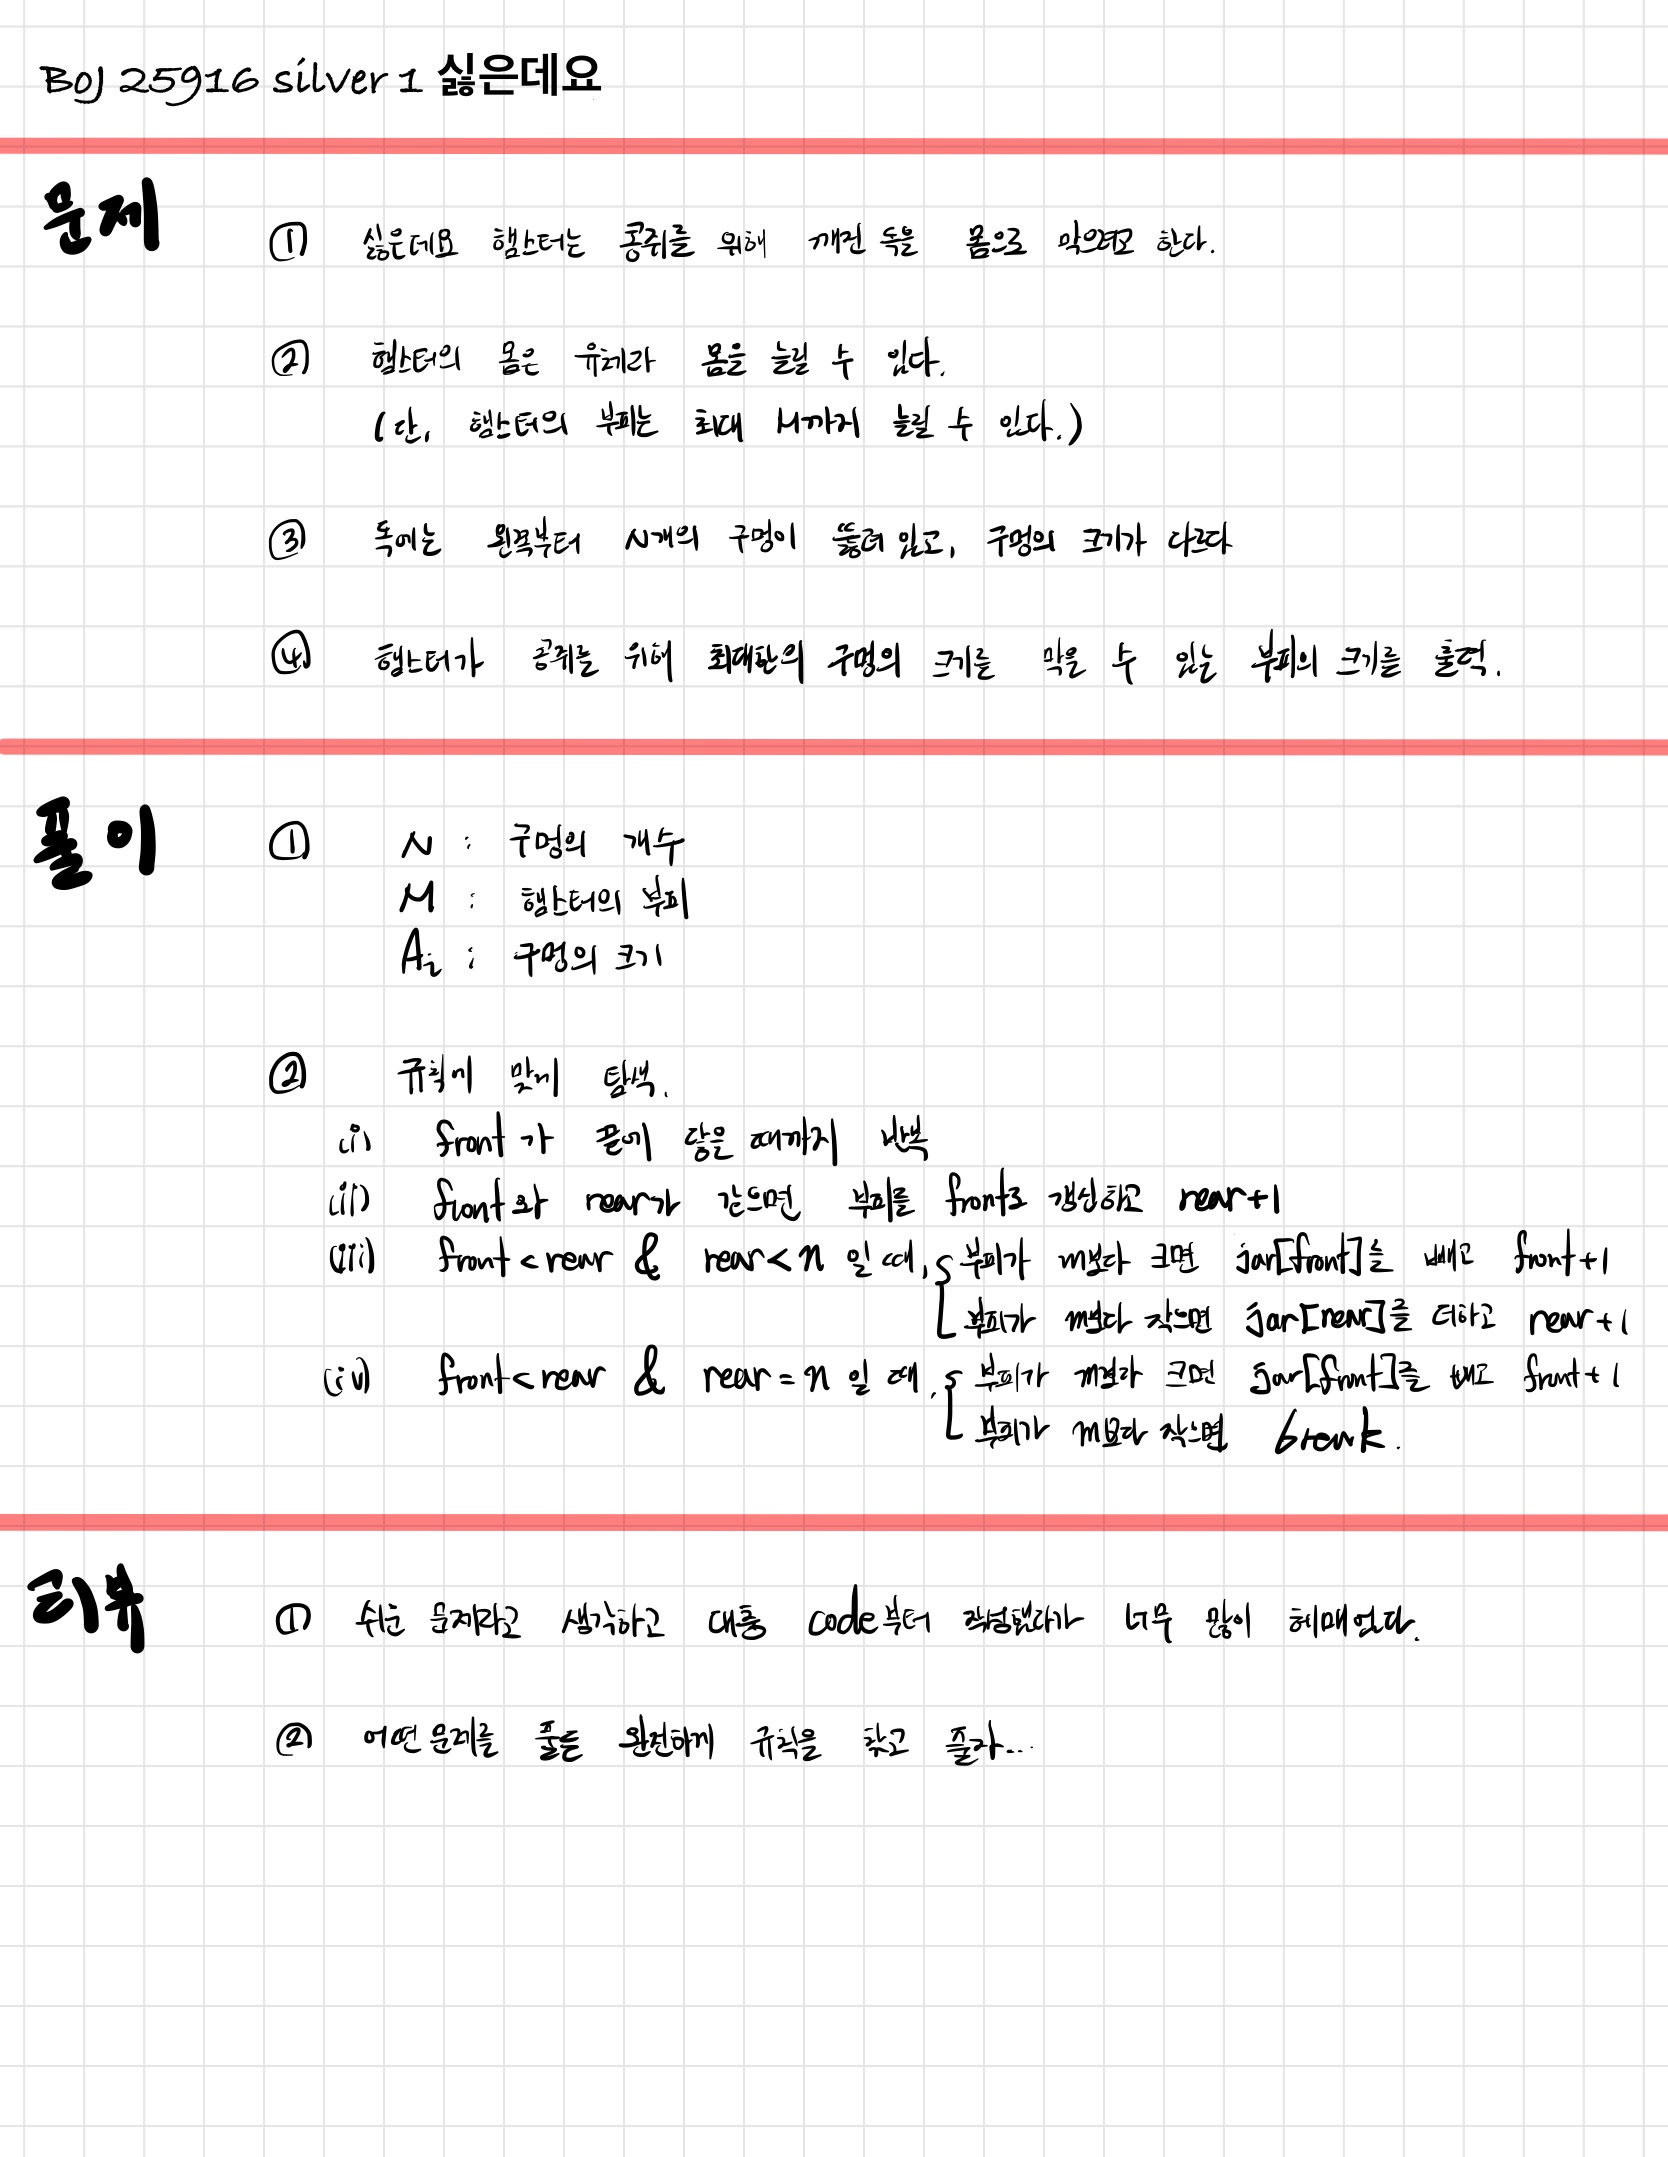 BOJ 25916 silver 1 싫은데요
문제
① 싫은데요 햄스터는 콩쥐를 위해 깨진 독을 몸으로 막으려고 한다.
② 햄스터의 몸은 유체라 몸을 늘릴 수 있다.
(단, 햄스터의 부피는 최대 M까지 늘릴 수 있다.)
③ 독에는 왼쪽부터 N개의 구멍이 뚫려 있고, 구멍의 크기가 다르다
④ 햄스터가 콩쥐를 위해 최대한의 구멍의 크기를 막을 수 있는 부피의 크기를 출력.
풀이
① N : 구멍의 개수
M : 햄스터의 부피
Ai : 구멍의 크기
② 규칙에 맞게 탐색.
(i) front가 끝에 닿을 때까지 반복
(ii) front와 rear가 같으면 부피를 front로 갱신하고 rear+1
(iii) front < rear & rear < n 일 때, 부피가 m보다 크면 jar[front]를 빼고 front+1
부피가 m보다 작으면 jar[rear]를 더하고 rear+1
(iv) front < rear & rear = n 일 때, 부피가 m보다 크면 jar[front]를 빼고 front+1
부피가 m보다 작으면 break.
리뷰
① 쉬운 문제라고 생각하고 대충 code부터 작성했다가 너무 많이 헤매었다.
② 어떤 문제를 풀든 완전하게 규칙을 찾고 풀자...